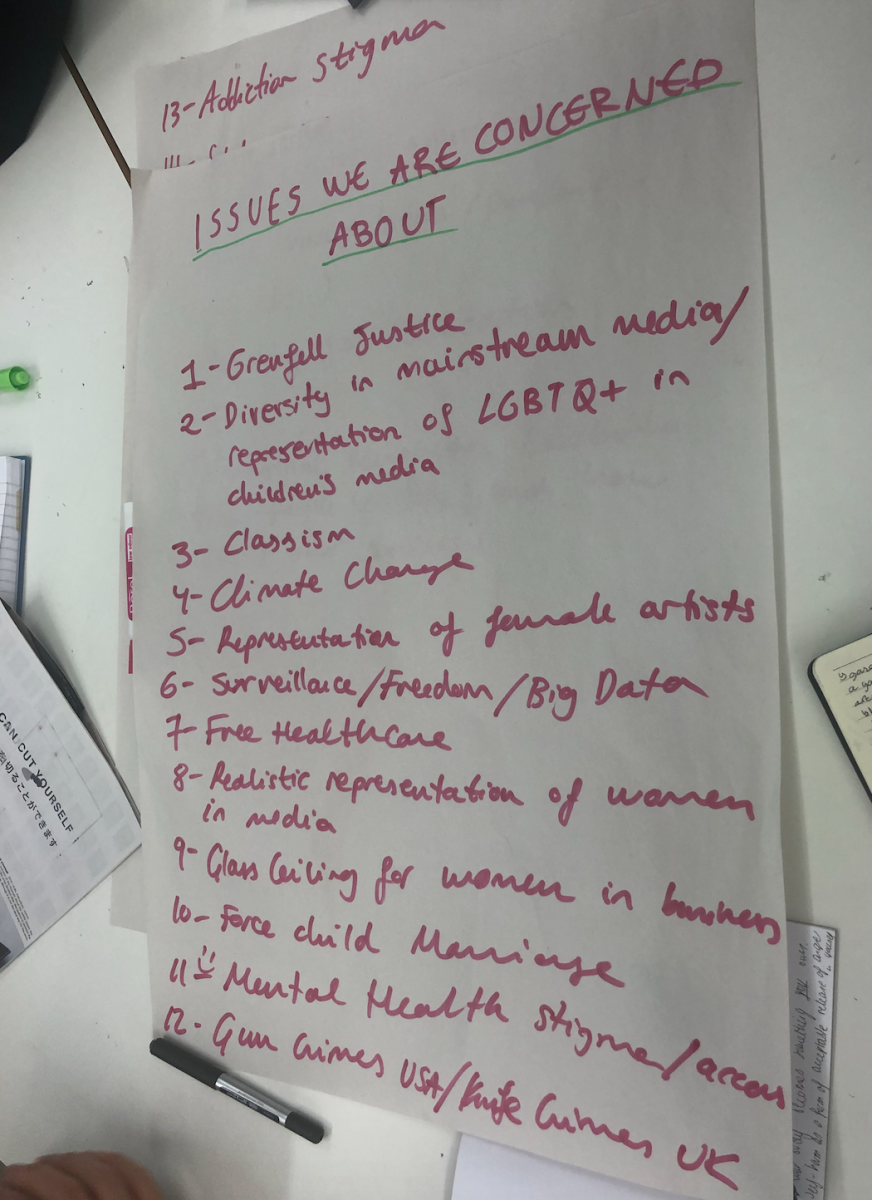 13- Addiction stigma
ISSUES WE ARE CONCERNED
ABOUT
1- Grenfell Justice
2- Diversity in mainstream media/
representation of LGBTQ+ in
children's media
3- Classism
4- Climate Change
5- Representation of female artists
6- Surveillance/Freedom/Big Data
7- Free Healthcare
8- Realistic representation of women
in media
9- Glass Ceiling for women in business
10- Force child Marriage
11- Mental Health stigma/access
12- Gun Crimes USA/Knife Crimes UK
CAN CUT YOURSELF
切ることができます